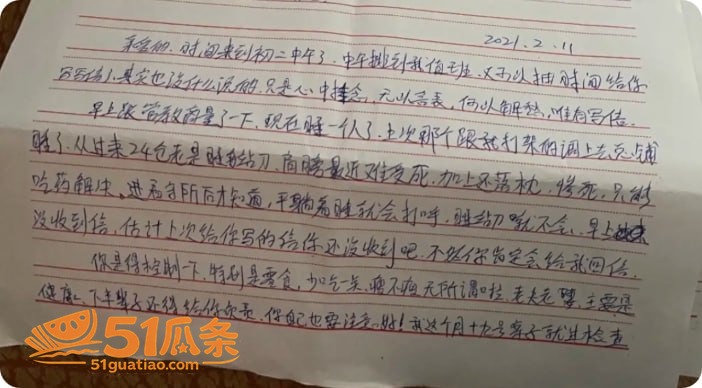 2021.2.11
亲爱的,时间来到初二中午了,中午排到我值班,又可以抽时间给你
写写信,其实也没什么说的,只是心中挂念,无以言表,何以解愁,唯有写信。
早上跟管教商量了一下,现在睡一人了,上次那个跟我打架的调上去
睡了,从过来24仓老是睡 ,肩膀最近难受死,加上还落枕,惨死,只能
吃药解决,进看守所后才知道,平躺着睡就会打呼,睡 就不会,早上
没收到信,估计上次给你写的信你还没收到吧,不然你肯定会给我回信。
你是得控制一下,特别是零食,少吃一点,瘦不瘦无所谓啦,老夫老妻,主要是
健康,下半辈子还得给你负责,你自己也要注意 ,我这个月 号案子就进检查
51瓜条
51guatiao.com